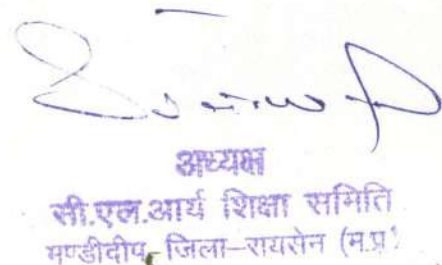 अध्यक्ष
सी.एल.आर्य शिक्षा समिति
मण्डीदीप जिला–रायसेन (म.प्र.)